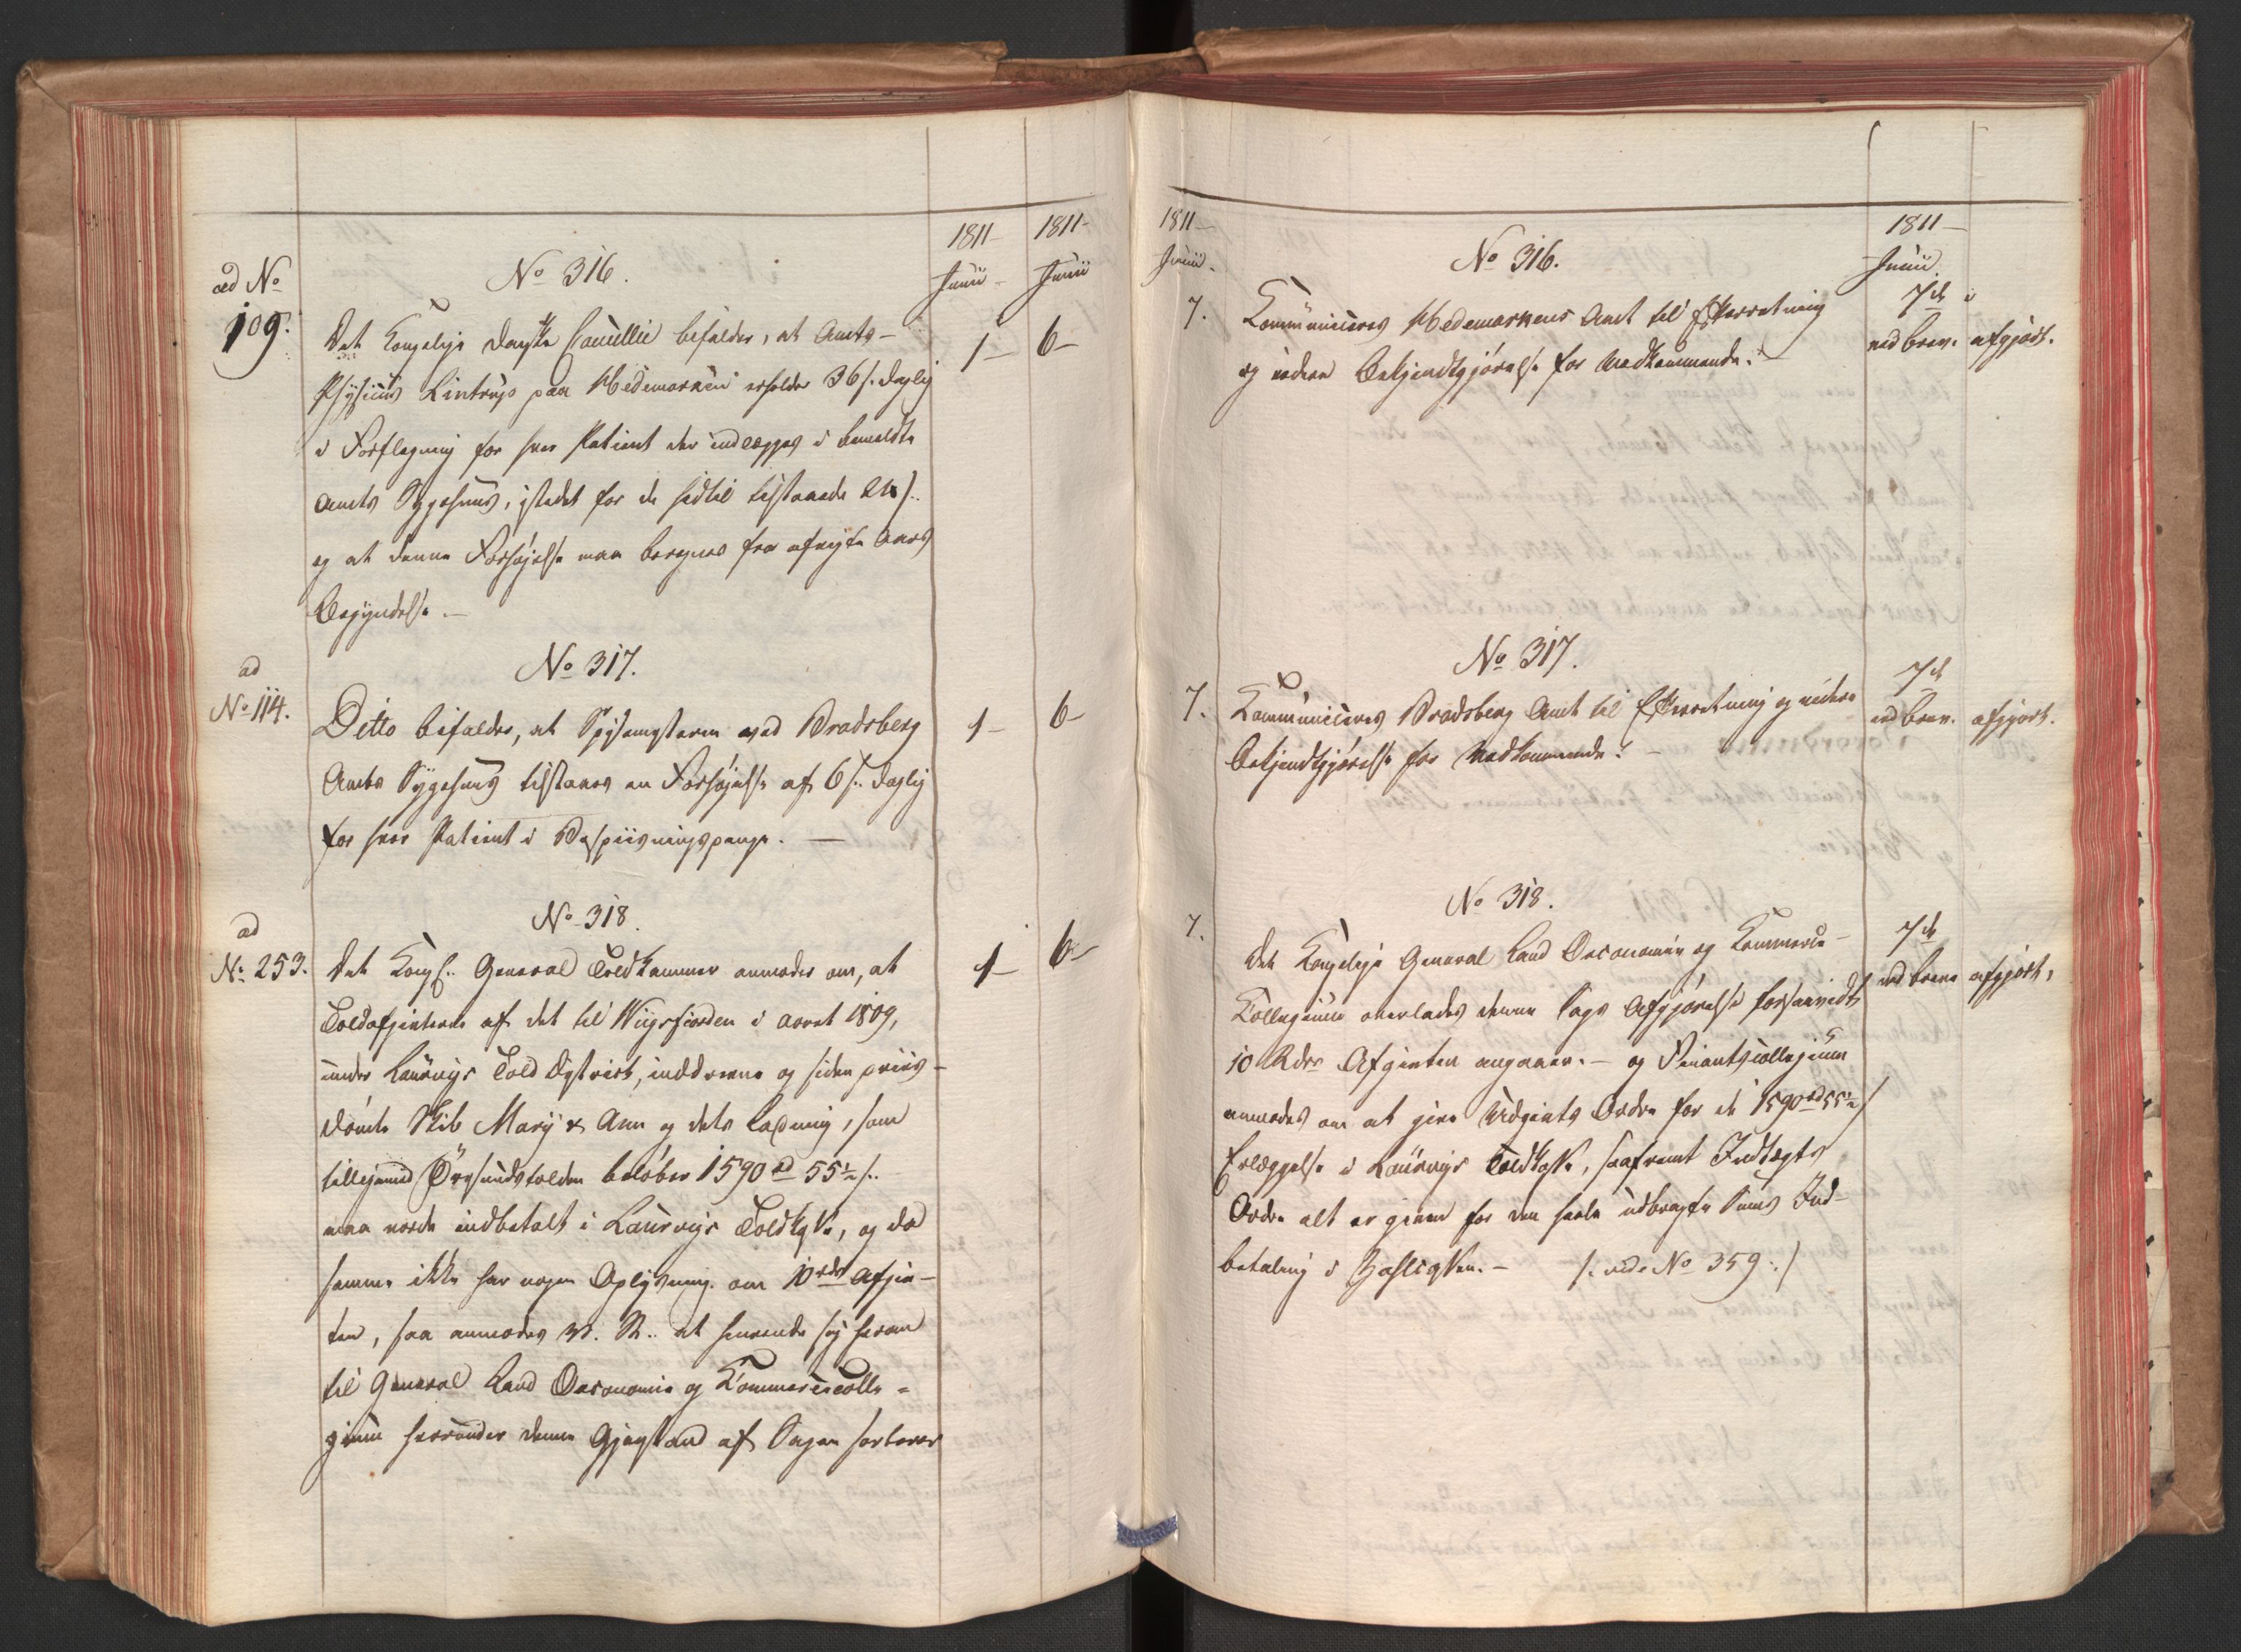 1811
Junii
1811
Junii
ad No
109.
No 316.
Det Kongelige danske Cancellie befaler, at Amts-
Physicus Lintrup paa Hedemarken erholder 36 s. daglig
i Forflegning for hver Patient der indlægges i bemeldte
Amts Sygehuus, istedet for de hidtil tilstaaede 24 s.
og at denne Forhøjelse maa beregnes fra afvigte Aars
Begyndelse.
1
6
ad
No 114.
No 317.
Ditto befaler, at Spisemesteren ved Bradsberg
Amts Sygehuus tilstaaes en Forhøjelse af 6 s. daglig
for hver Patient i Bespiisningspenge.
1
6
ad
No 253.
No 318.
Det Kongl. General Toldkammer anmoder om, at
Toldafgivterne af det til Wiigsfiorden i aaret 1809,
under Laurvigs Told District, inddrevne og siden priis-
dömte Skib Mary & Ann og dets Ladning, som
tilligemed Öresundstolden beløber 1590 rd 55½ s.
maa vorde indbetalt i Laurvigs Toldkasse, og da
samme ikke har nogen Oplysning om 10 rdrs Afgiv-
ten, saa anmodes R. K. at henvende sig herom
til General Land Oeconomie og Kommercecolle-
gium hvorunder denne Gjenstand af Sagen sorterer
1
6
1811
Junii
No 316.
1811
Junii
7.
Kommuniceres Hedemarkens Amt til Efterretning
og videre Bekjendtgjørelse for Vedkommende.
7de
ved brev.
afgjort.
No 317.
7.
Kommuniceres Bradsberg Amt til Efterretning og videre
Bekjendtgjørelse for Vedkommende.
7de
ved brev.
afgjort.
No 318.
7.
Det Kongelige General Land Oeconomie og Kommerce-
Kollegium overlades denne Sags Afgjørelse forsaavidt
10 Rdrs Afgivten angaaer. og Finantscollegium
anmodes om at give Udgivts Ordre for de 1590 rd 55½ s
Erlæggelse i Laurvigs Toldkasse, saafremt Indtægts
Ordre alt er given for den heele udbragte Sums Ind-
betaling i Zahlcassen. /: vide No 359 :/
7de
ved brev
afgjort.